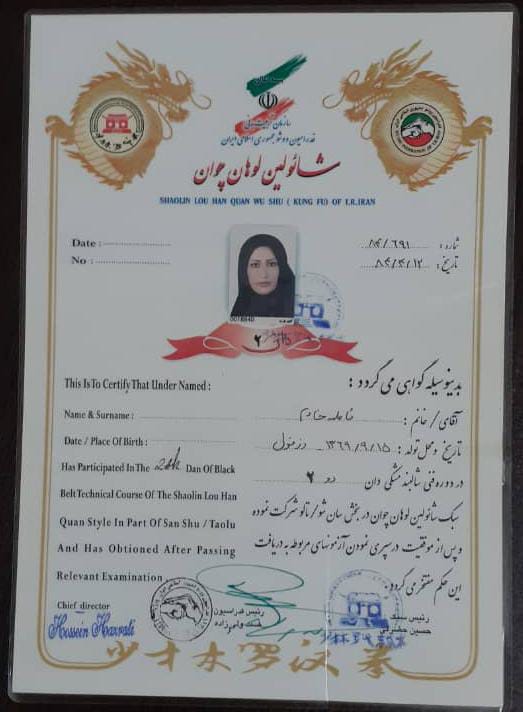 سازمان تربیت بدنی
فدراسیون ووشو جمهوری اسلامی ایران
شائولین لوهان چوان
SHAOLIN LOU HAN QUAN WU SHU ( KUNG FU) OF I.R.IRAN
Date :
شماره : ۸۴/۶۹۱
No :
تاریخ : ۸۴/۴/۱۲
دان ۲
This Is To Certify That Under Named :
بدینوسیله گواهی می گردد :
Name & Surname :
آقای / خانم :
Date / Place Of Birth :
تاریخ و محل تولد : ۱۳۶۹/۹/۱۵ دزفول
Has Participated In The 2th Dan Of Black
در دوره فنی شالبند مشکی دان دو ۲
Belt Technical Course Of The Shaolin Lou Han
سبک شائولین لوهان چوان در بخش سان شو / تالو شرکت نموده
Quan Style In Part Of San Shu / Taolu
و پس از موفقیت در سپری نمودن آزمونهای مربوطه به دریافت
And Has Obtioned After Passing
این حکم مفتخر می گردد.
Relevant Examination
Chief director
Hossein Hazrati
رئیس فدراسیون
رئیس سبک
حسین حضرتی
少林罗汉拳